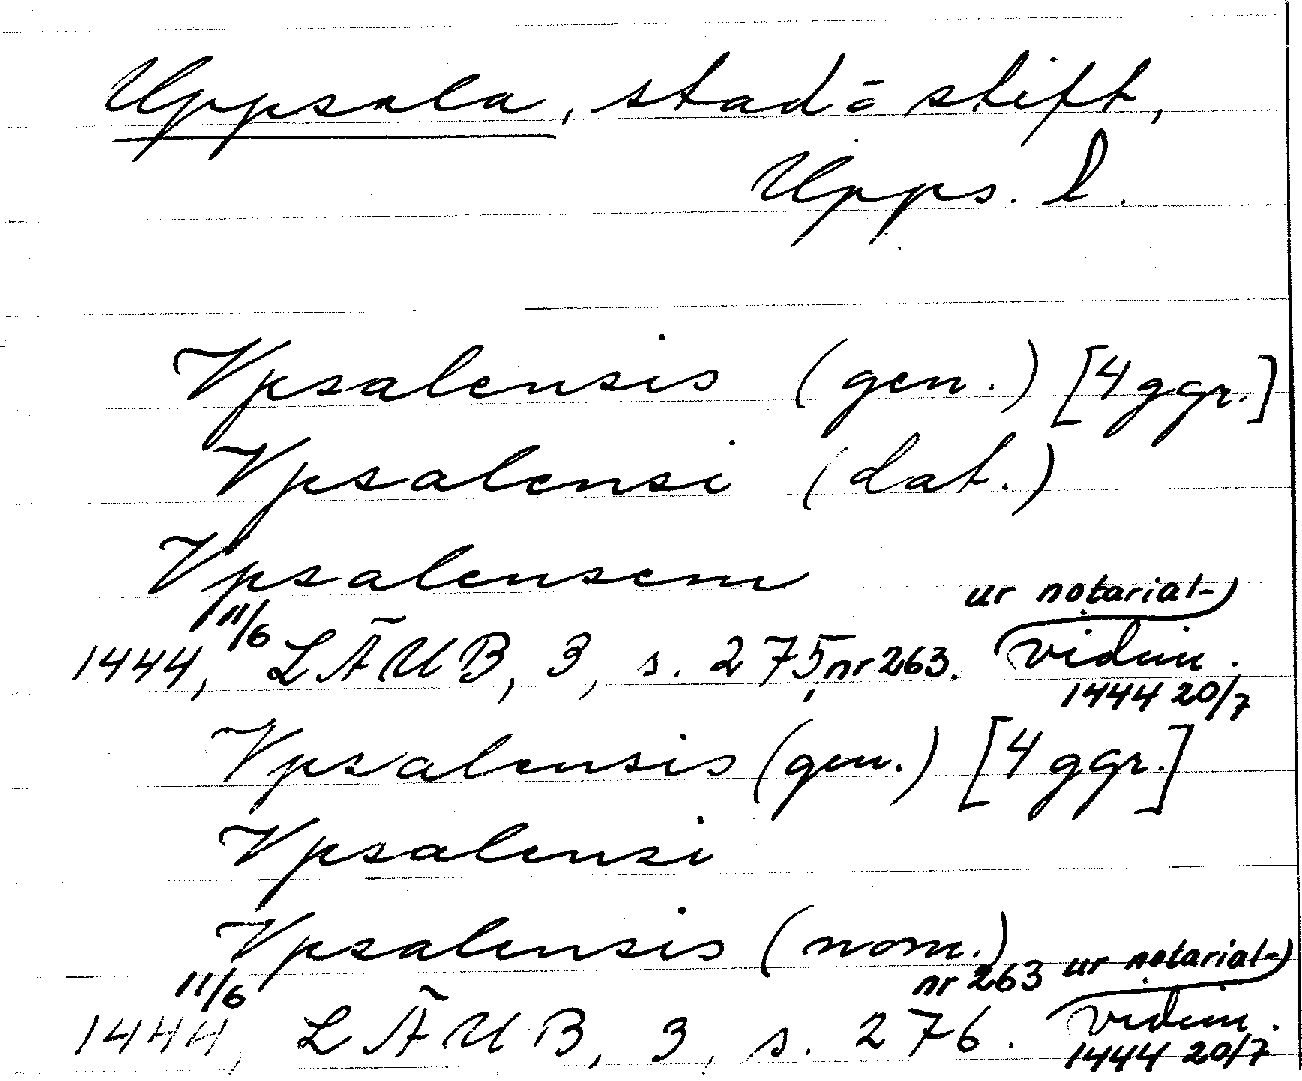 Uppsala, stad o stift,
Upps. l.
Vpsalensis (gen.) [4 ggr.]
Vpsalensi (dat.)
Vpsalensem
1444, 11/6 LÄUB, 3, s. 275, nr 263. ur notarial-
vidim.
1444 20/7
Vpsalensis (gen.) [4 ggr.]
Vpsalensi
Vpsalensis (nom.)
1444, 11/6 LÄUB, 3, s. 276. nr 263 ur notarial-
vidim.
1444 20/7